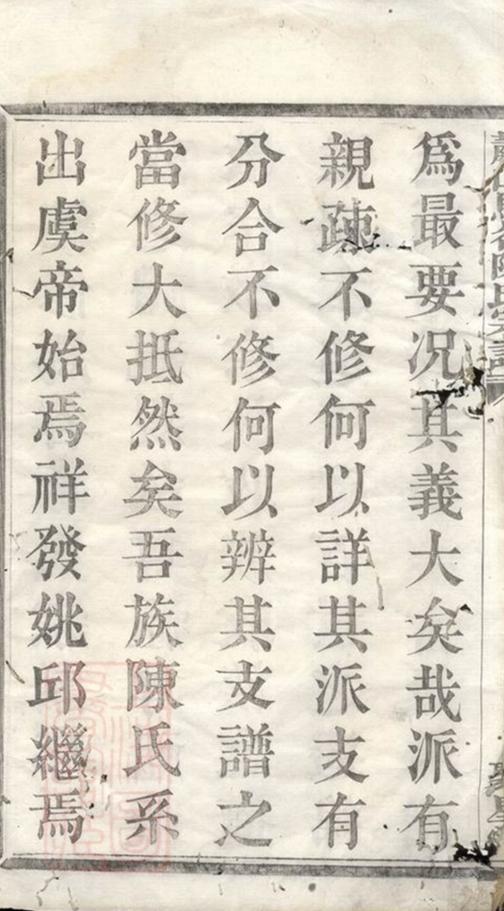 爲最要况其義大矣哉派有
親疎不修何以詳其派支有
分合不修何以辨其支譜之
當修大抵然矣吾族陳氏系
出虞帝始焉祥發姚邱繼焉